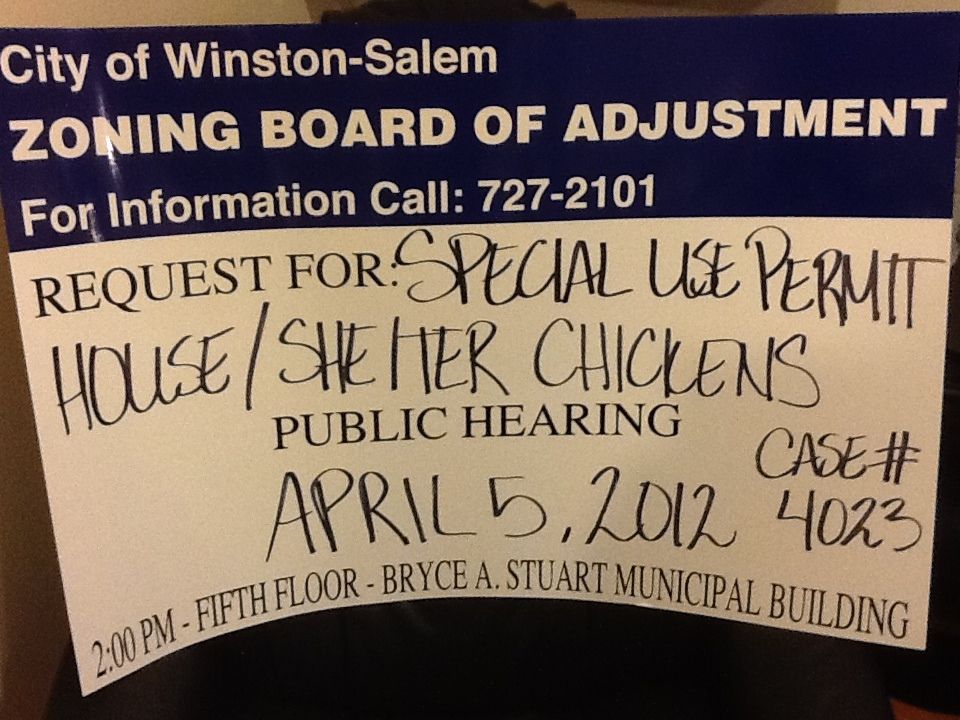 City of Winston-Salem
ZONING BOARD OF ADJUSTMENT
For Information Call: 727-2101
REQUEST FOR: SPECIAL USE PERMIT
HOUSE/SHELTER CHICKENS
PUBLIC HEARING
CASE#
APRIL 5, 2012 4023
2:00 PM - FIFTH FLOOR - BRYCE A. STUART MUNICIPAL BUILDING